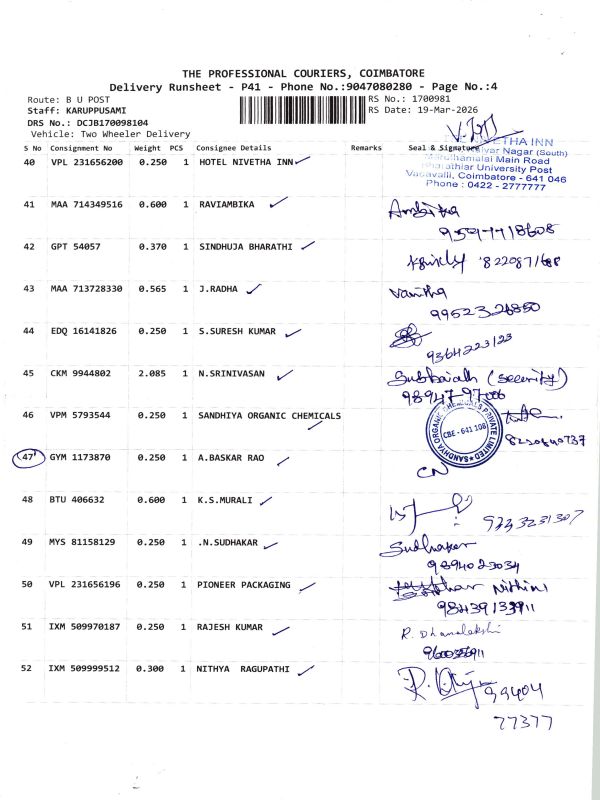 THE PROFESSIONAL COURIERS, COIMBATORE
Delivery Runsheet - P41 - Phone No.:9047080280 - Page No.:4
Route: B U POST RS No.: 1700981
Staff: KARUPPUSAMI RS Date: 19-Mar-2026
DRS No.: DCJB170098104
Vehicle: Two Wheeler Delivery
S No Consignment No Weight PCS Consignee Details Remarks Seal & Signature
40 VPL 231656200 0.250 1 HOTEL NIVETHA INN
Maruthamalai Main Road
Bharathiar University Post
Vadavalli, Coimbatore - 641 046
Phone : 0422 - 2777777
41 MAA 714349516 0.600 1 RAVIAMBIKA
Ambika
42 GPT 54057 0.370 1 SINDHUJA BHARATHI
43 MAA 713728330 0.565 1 J.RADHA
Vanitha
44 EDQ 16141826 0.250 1 S.SURESH KUMAR
9364223123
45 CKM 9944802 2.085 1 N.SRINIVASAN
Subbaiah (security)
98947 97006
46 VPM 5793544 0.250 1 SANDHIYA ORGANIC CHEMICALS
SANDHYA ORGANIC CHEMICALS PRIVATE LIMITED
CBE - 641 108
47 GYM 1173870 0.250 1 A.BASKAR RAO
CN
48 BTU 406632 0.600 1 K.S.MURALI
49 MYS 81158129 0.250 1 .N.SUDHAKAR
Sudhakar
9894023034
50 VPL 231656196 0.250 1 PIONEER PACKAGING
Nithini
51 IXM 509970187 0.250 1 RAJESH KUMAR
R. Dhanalakshi
52 IXM 509999512 0.300 1 NITHYA RAGUPATHI
99404
77377